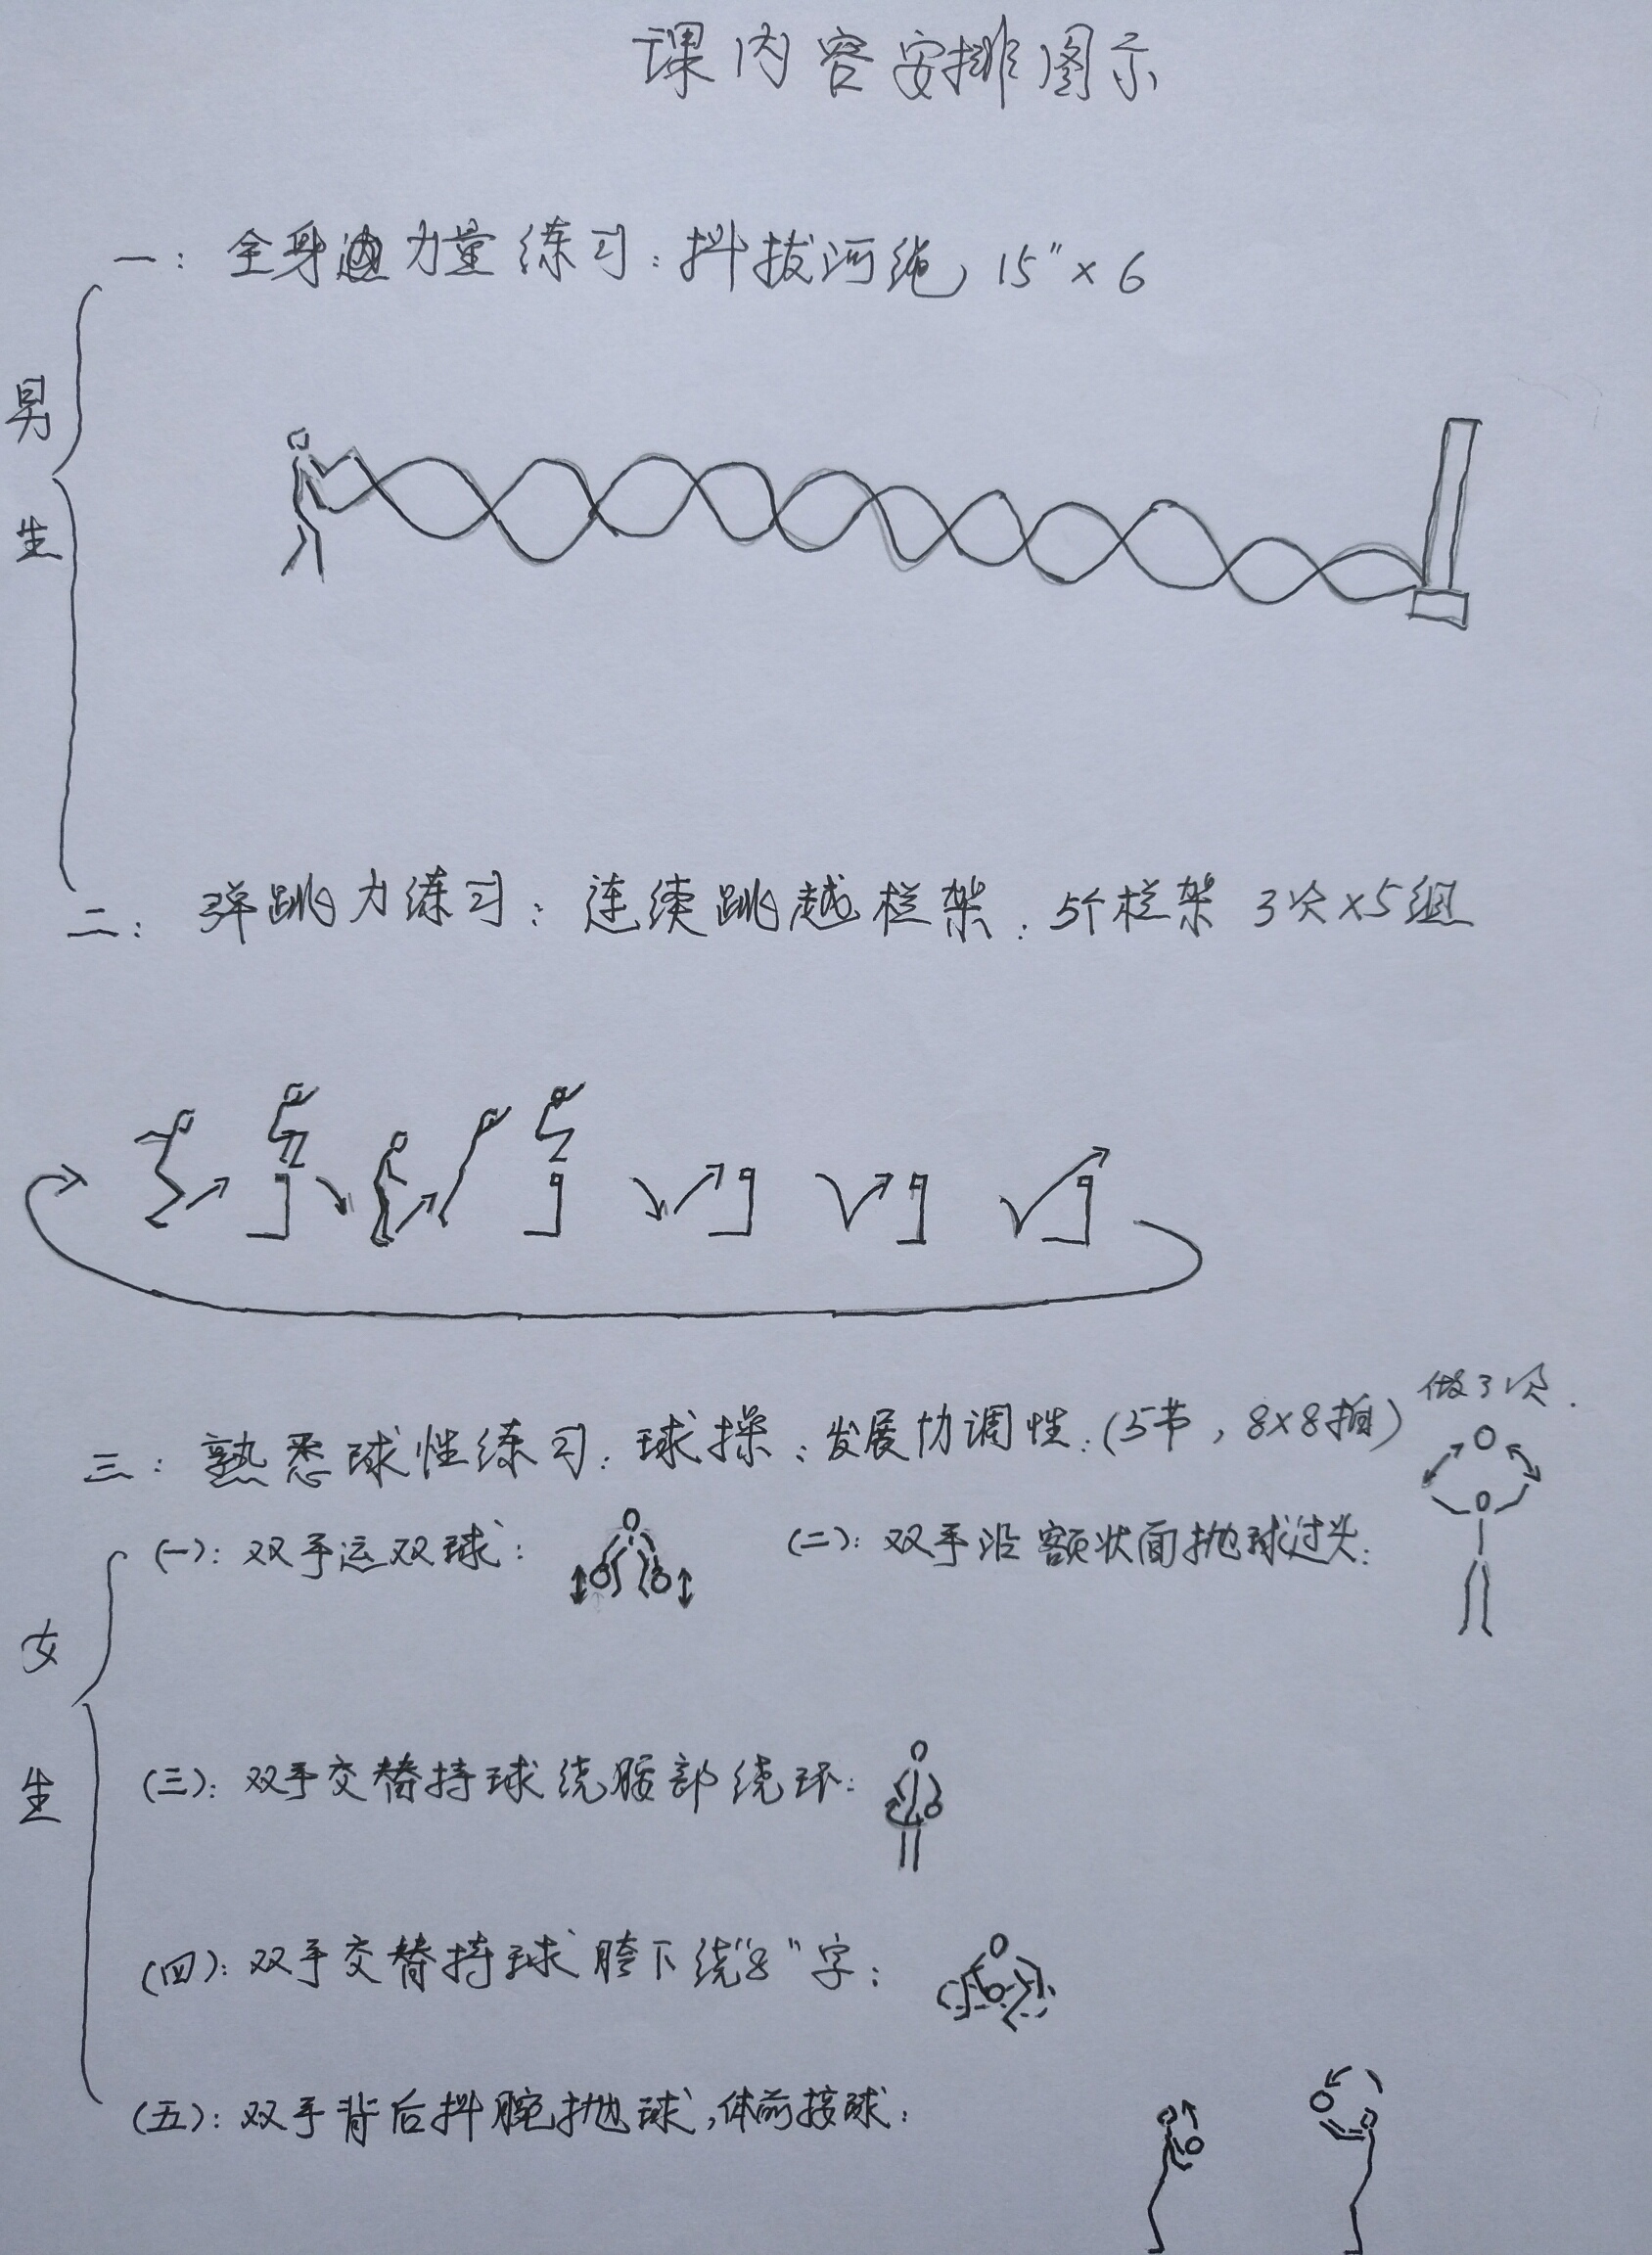 课内容安排图示
一：全身力量练习：抖拔河绳 15"×6
男生
二：弹跳力练习：连续跳越栏架：5个栏架 3次×5组
做3次.
三：熟悉球性练习：球操：发展协调性：(5节，8×8拍)
(一)：双手运双球：
(二)：双手沿额状面抛球过头：
女生
(三)：双手交替持球绕腰部绕环：
(四)：双手交替持球胯下绕"8"字：
(五)：双手背后抖腕抛球,体前接球：